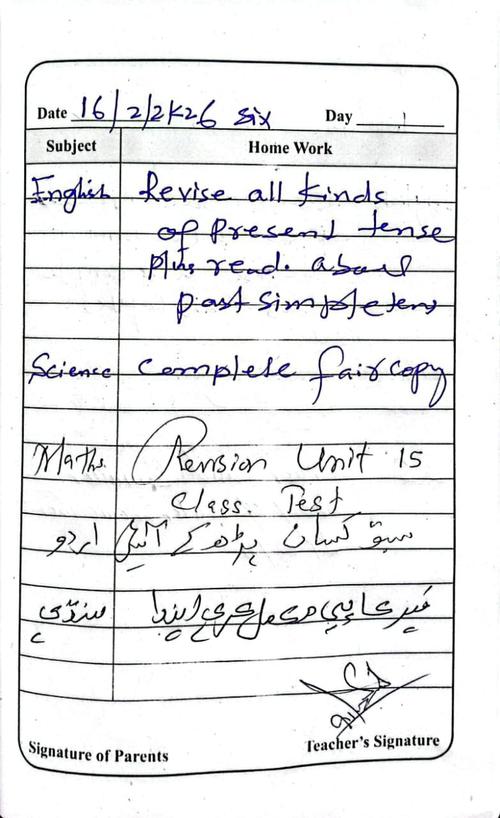 Date 16/2/2K26 six Day
Subject Home Work
English Revise all kinds
of Present tense
plus read. about
past simple tens
Science complete fair copy
Maths. Revision Unit 15
Class. Test
اردو سبق کسان پڑھ کے آئیں
سنڌي فيئر ڪاپي مڪمل ڪري
Signature of Parents Teacher's Signature